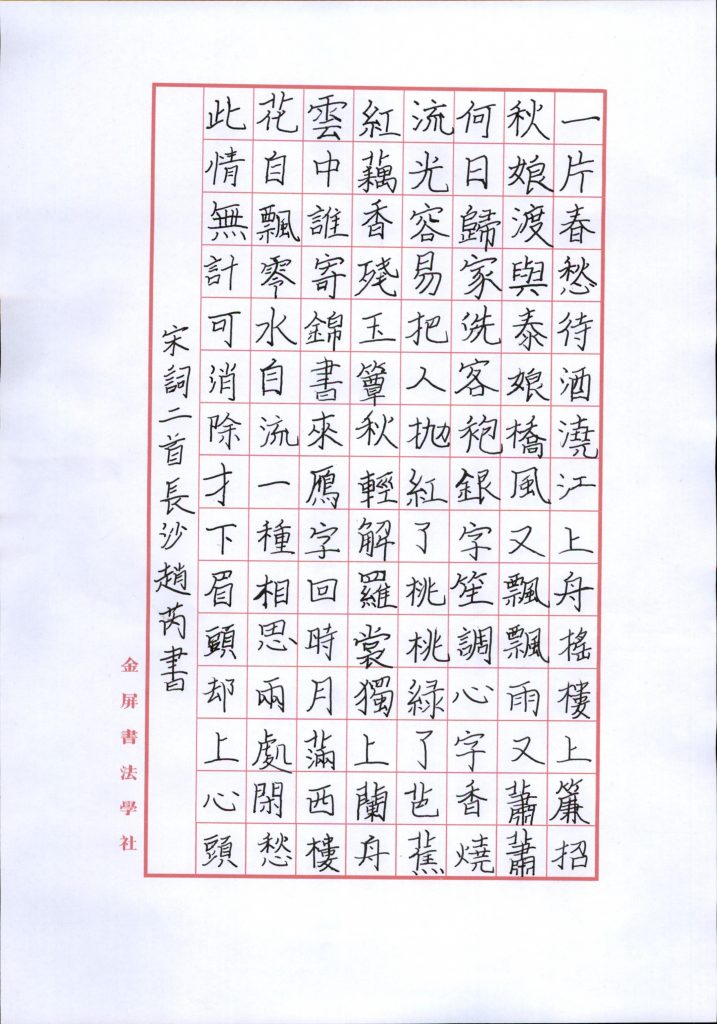 一片春愁待酒澆江上舟搖樓上簾招
秋娘渡與泰娘橋風又飄飄雨又蕭蕭
何日歸家洗客袍銀字笙調心字香燒
流光容易把人拋紅了桃桃綠了芭蕉
紅藕香殘玉簟秋輕解羅裳獨上蘭舟
雲中誰寄錦書來鴈字回時月滿西樓
花自飄零水自流一種相思兩處閑愁
此情無計可消除才下眉頭却上心頭
宋詞二首長沙趙芮書
金屏書法學社